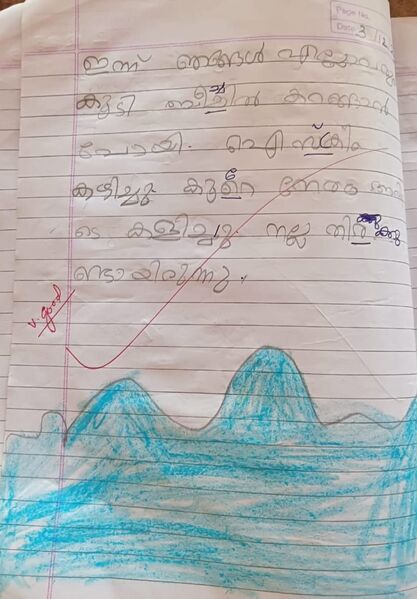 Page No.
Date 3 12
ഇന്ന് ഞങ്ങൾ എല്ലാവരും
കൂടി ബീച്ചിൽ കറങ്ങാൻ
പോയി. ഐസ്ക്രീം
കഴിച്ചു കുറെ നേരം അവി
ടെ കളിച്ചു നല്ല തിരക്കു
ണ്ടായിരുന്നു.
v. good